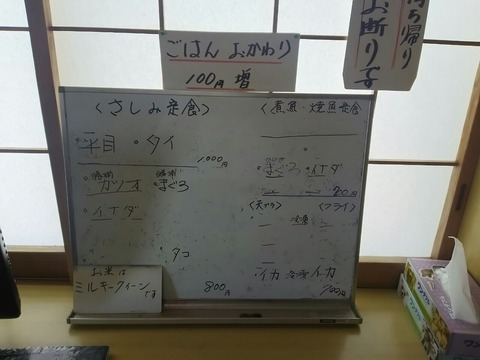 持ち帰り
お断りです
ごはん おかわり
100円増
〈さしみ定食〉
平目 ・タイ
1,000円
・カツオ ・まぐろ
・イナダ
・タコ
800円
お米は
ミルキークイーン
です
〈煮魚・焼魚定食〉
・まぐろ ・イナダ
800円
〈天ぷら〉 〈フライ〉
・イカ イカ